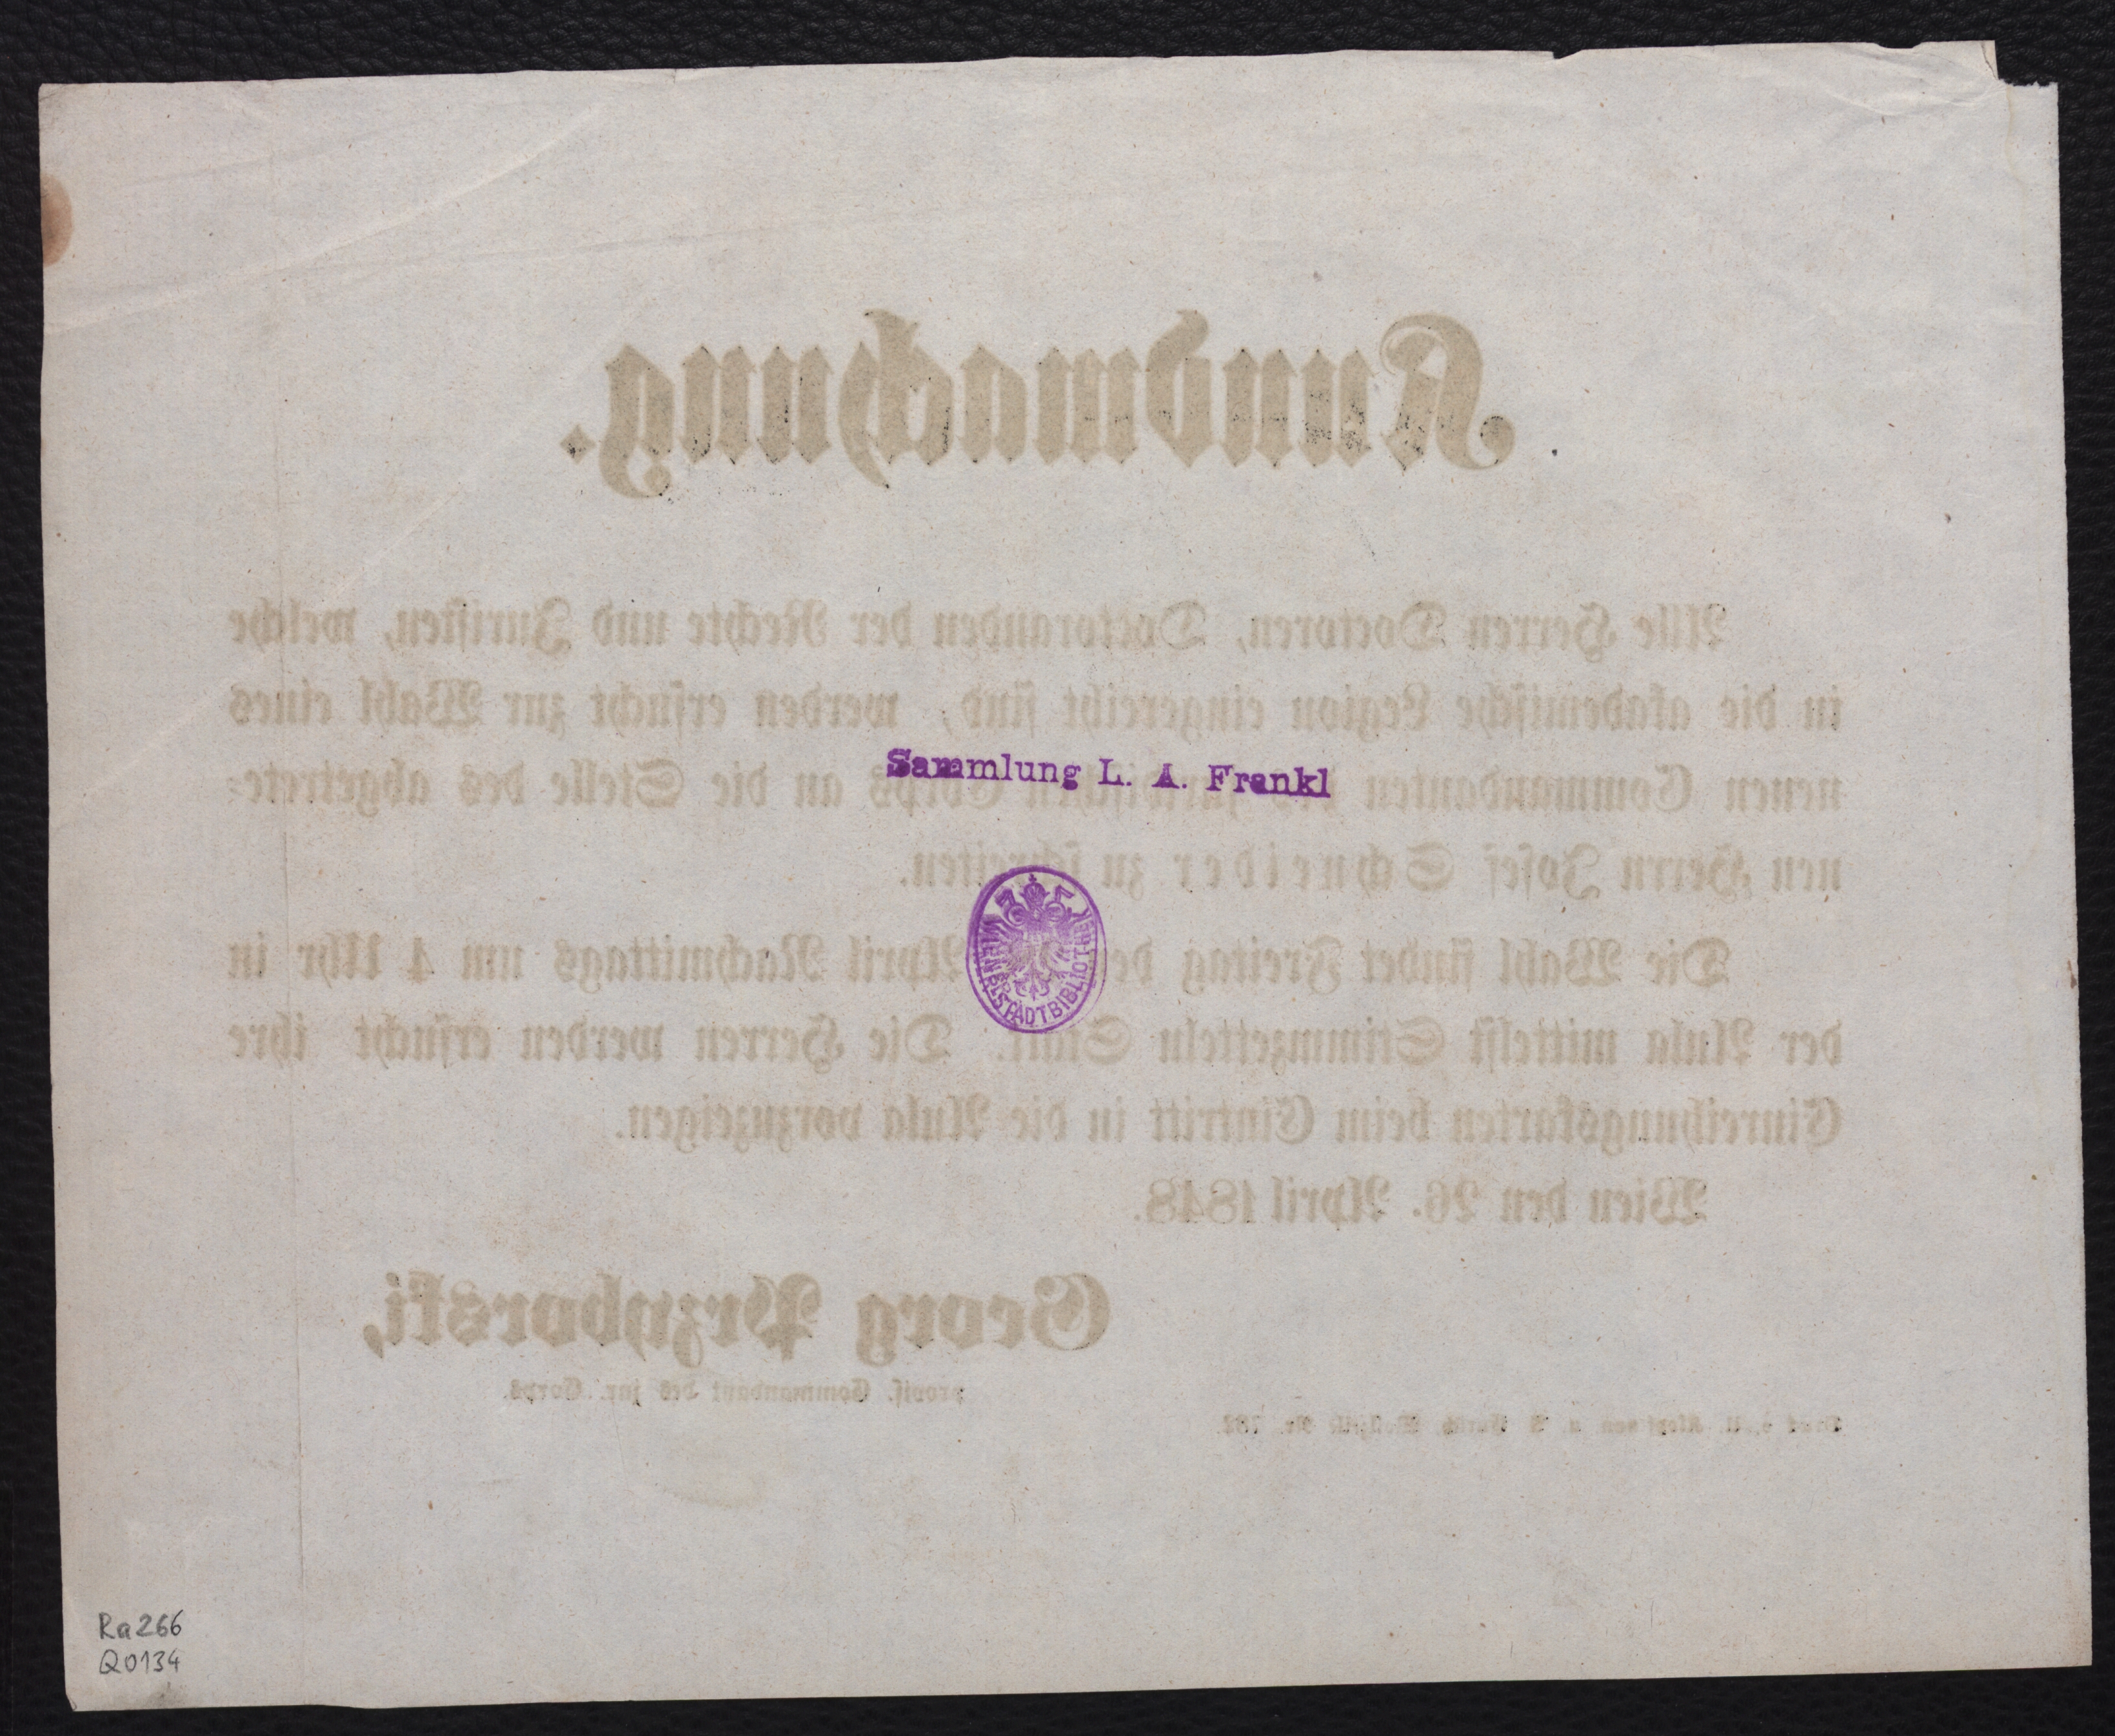 Kundmachung.
Alle Herren Doctoren, Doctoranden der Rechte und Juristen, welche
in die akademische Legion eingereiht sind, werden ersucht zur Wahl eines
neuen Commandanten des juridischen Corps an die Stelle des abgetrete-
Sammlung L. A. Frankl
nen Herrn Josef Schneider zu schreiten.
WIENER STADTBIBLIOTHEK
Die Wahl findet Freitag April Nachmittags um 4 Uhr in
der Aula mittelst Stimmzetteln Statt. Die Herren werden ersucht ihre
Einreihungskarten beim Eintritt in die Aula vorzuzeigen.
Wien den 26. April 1848.
Georg Przyborski,
provis. Commandant des jur. Corps.
Nr. 782.
Ra266
Q0134